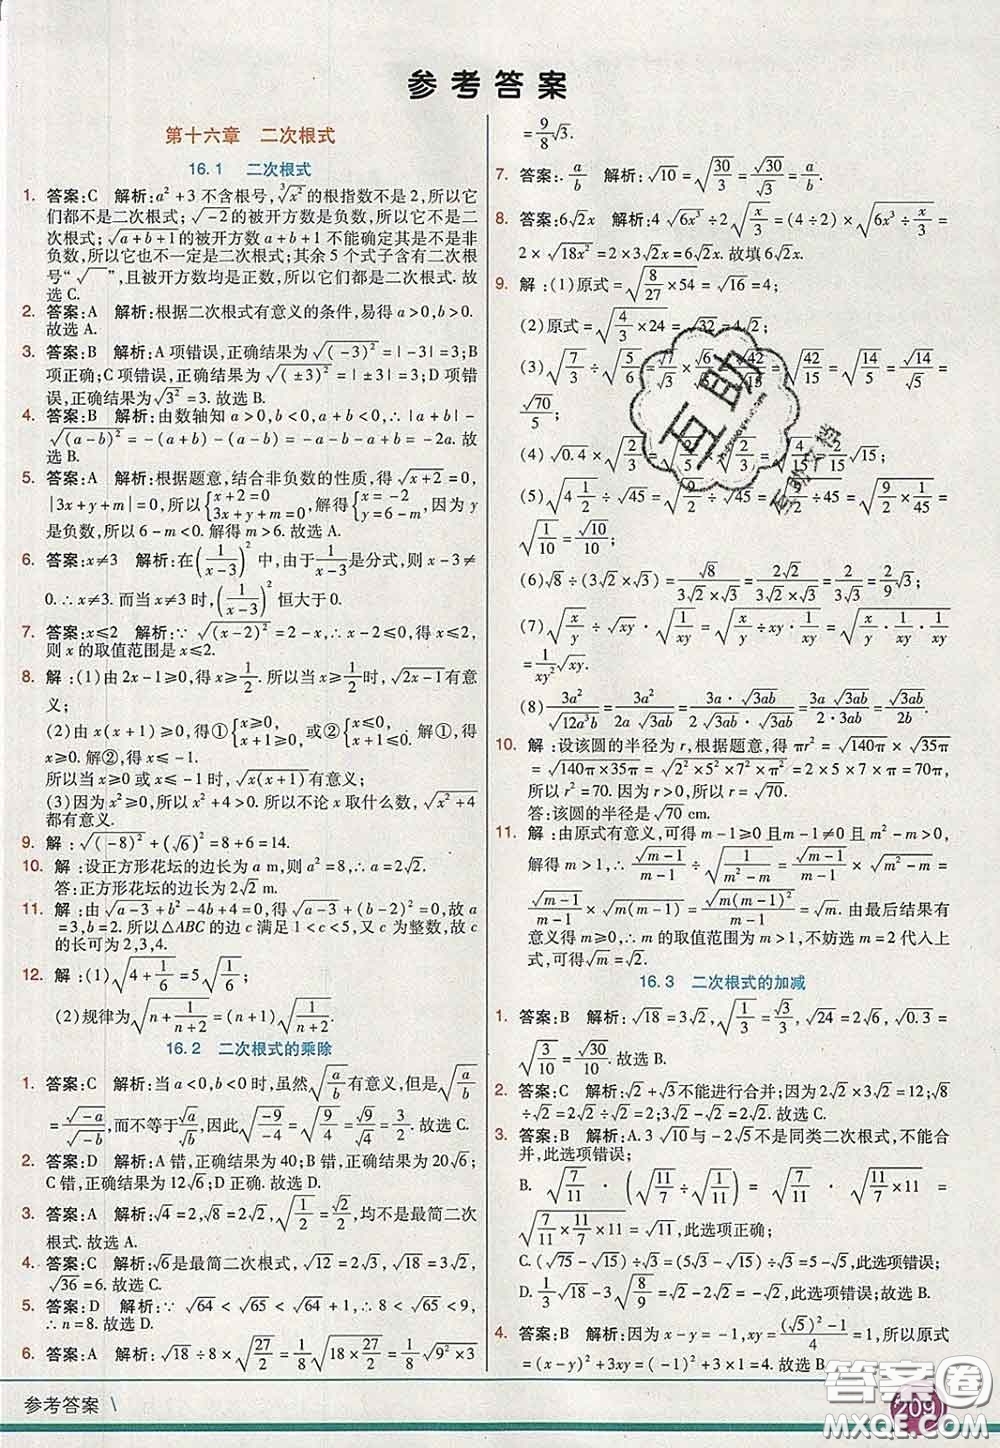 参考答案
第十六章 二次根式
16.1 二次根式
1. 答案:C 解析:a²+3不含根号,∛x²的根指数不是2,所以它
们都不是二次根式;√-2的被开方数是负数,所以不是二
次根式;√(a+b+1)的被开方数a+b+1不能确定其是不是非
负数,所以也不一定是二次根式;其余5个式子含有二次根
号“√ ”,且被开方数均是正数,所以它们都是二次根式.故
选C.
2. 答案:A 解析:根据二次根式有意义的条件,易得a>0,b>0.
故选A.
3. 答案:B 解析:A项错误,正确结果为√(-3)²=|-3|=3;B
项正确;C项错误,正确结果为√(±3)²=|±3|=3;D项错
误,正确结果为√3²=3.故选B.
4. 答案:B 解析:由数轴知a>0,b<0,a+b<0,∴|a+b|-
√(a-b)²=-(a+b)-(a-b)=-a-b-a+b=-2a.故
选B.
5. 答案:A 解析:根据题意,结合非负数的性质,得√(x+2)=0,
|3x+y+m|=0,所以{x+2=0 3x+y+m=0 解得{x=-2 y=6-m,因为y
是负数,所以6-m<0.解得m>6.故选A.
6. 答案:x≠3 解析:在(1/(x-3))²中,由于1/(x-3)是分式,则x-3≠
0.∴x≠3.而当x≠3时,(1/(x-3))²恒大于0.
7. 答案:x≤2 解析:∵√(x-2)²=2-x,∴2-x≥0,得x≤2,
则x的取值范围是x≤2.
8. 解:(1)由2x-1≥0,得x≥1/2.所以当x≥1/2时,√(2x-1)有意
义;
(2)由x(x+1)≥0,得①{x≥0, x+1≥0;或②{x≤0, x+1≤0.解①,得
x≥0.解②,得x≤-1.
所以当x≥0或x≤-1时,√(x(x+1))有意义;
(3)因为x²≥0,所以x²+4>0.所以不论x取什么数,√(x²+4)
都有意义.
9. 解:√(-8)²+(√6)²=8+6=14.
10. 解:设正方形花坛的边长为a m,则a²=8,∴a=2√2.
答:正方形花坛的边长为2√2 m.
11. 解:由√(a-3)+b²-4b+4=0,得√(a-3)+(b-2)²=0,故a
=3,b=2.所以△ABC的边c满足1<c<5,又c为整数,故c
的长可为2,3,4.
12. 解:(1)√(4+1/6)=5√(1/6);
(2)规律为√(n+1/(n+2))=(n+1)√(1/(n+2)).
16.2 二次根式的乘除
1. 答案:C 解析:当a<0,b<0时,虽然√(a/b)有意义,但是√(a/b)
=√-a/√-b,而不等于√a/√b,因此√(-9/-4)=√(9/4)=√9/√4=3/2.故选C.
2. 答案:D 解析:A错,正确结果为40;B错,正确结果为20√6;
C错,正确结果为12√6;D正确.故选D.
3. 答案:A 解析:√4=2,√8=2√2,√(1/2)=√2/2,均不是最简二次
根式.故选A.
4. 答案:C 解析:√6是最简二次根式,√12=2√3,√18=3√2,
√36=6.故选C.
5. 答案:D 解析:∵√64<√65<√64+1,∴8<√65<9,
∴n=8.故选D.
6. 答案:A 解析:√18÷8×√(27/2)=1/8√(18×27/2)=1/8√(9²×3)
=9/8√3.
7. 答案:a/b 解析:√10=√(30/3)=√30/√3=a/b.
8. 答案:6√2x 解析:4√(6x³)÷2√(x/3)=(4÷2)×√(6x³÷x/3)=
2×√(18x²)=2×3√2x=6√2x.故填6√2x.
9. 解:(1)原式=√(8/27×54)=√16=4;
(2)原式=√(4/3×24)=√32=4√2;
(3)√(7/3)÷√(5/6)=√(7/3×6/5)=√(42/15)=√(14/5)=√14/√5=
√70/5;
(4)√0.4×√(2/3)=√(4/15)=2/15√15;
(5)√(4 1/2)÷√45=√(9/2)÷√45=√(9/2×1/45)=
√(1/10)=√10/10;
(6)√8÷(3√2×√3)=√8/(3√2×√3)=2√2/(3√2×√3)=2/(3√3)=2/9√3;
(7)√(x/y)÷√xy·√(1/xy)=√(x/y÷xy·1/xy)=√(1/xy³)
=1/xy²√xy.
(8)3a²/√(12a³b)=3a²/(2a√3ab)=3a·√3ab/(2√3ab·√3ab)=3a√3ab/(2·3ab)=√3ab/2b.
10. 解:设该圆的半径为r,根据题意,得πr²=√140π×√35π
=√(140π×35π)=√(2²×5²×7²×π²)=2×5×7×π=70π,
所以r²=70.因为r>0,所以r=√70.
答:该圆的半径是√70 cm.
11. 解:由原式有意义,可得m-1≥0且m-1≠0且m²-m>0,
解得m>1.∴√(m-1)/(m-1)÷√(1/(m²-m))=√(m-1)/(m-1)×√(m²-m)=
√(m-1)/(m-1)×√(m(m-1))=√(m(m-1)²)/(m-1)=√m.由最后结果有
意义得m≥0,∴m的取值范围为m>1,不妨选m=2代入上
式,可得√m=√2.
16.3 二次根式的加减
1. 答案:B 解析:√18=3√2,√(1/3)=√3/3,√24=2√6,√0.3=
√(3/10)=√30/10.故选B.
2. 答案:C 解析:√2+√3不能进行合并;因为2√2×3√2=12;√8
÷√2=2√2÷√2=2;3√2-√2=2√2.故选C.
3. 答案:B 解析:A.3√10与-2√5不是同类二次根式,不能合
并,此选项错误;
B.√(7/11)·(√(7/11)÷√(1/11))=√(7/11)·√(11/7×11)=
√(7/11×11/7×11)=√11,此选项正确;
C.(√75-√15)÷√3=(5√3-√15)÷√3=5-√5,此选项错误;
D.1/3√18-3√(8/9)=√2-2√2=-√2,此选项错误;故选B.
4. 答案:B 解析:因为x-y=-1,xy=((√5)²-1)/4=1,所以原式
=(x-y)²+3xy=(-1)²+3×1=4.故选B.
参考答案
209
互助
互助文档
答案圈
MXQE.COM